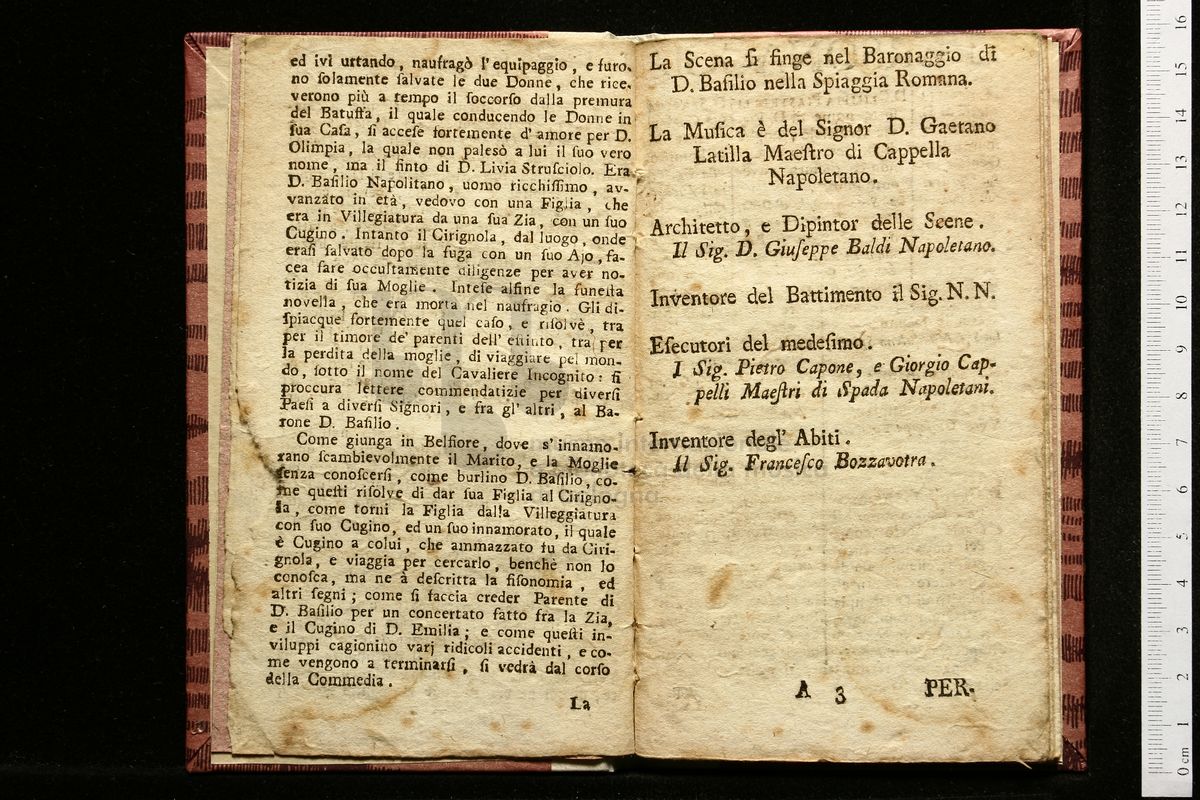 ed ivi urtando, naufragò l'equipaggio, e furo-
no ſolamente ſalvate le due Donne, che rice-
verono più a tempo il ſoccorſo dalla premura
del Batuffa, il quale conducendo le Donne in
ſua Caſa, ſi acceſe fortemente d'amore per D.
Olimpia, la quale non palesò a lui il ſuo vero
nome, ma il finto di D. Livia Struſciolo. Era
D. Baſilio Napolitano, uomo ricchiſſimo, av-
vanzato in età, vedovo con una Figlia, che
era in Villegiatura da una ſua Zia, con un ſuo
Cugino. Intanto il Cirignola, dal luogo, onde
eraſi ſalvato dopo la fuga con un ſuo Ajo, fa-
cea fare occultamente diligenze per aver no-
tizia di ſua Moglie. Inteſe alfine la funeſta
novella, che era morta nel naufragio. Gli di-
ſpiacque fortemente quel caſo, e riſolvè, tra
per il timore de' parenti dell' eſtinto, tra per
la perdita della moglie, di viaggiare pel mon-
do, ſotto il nome del Cavaliere Incognito: ſi
proccura lettere commendatizie per diverſi
Paeſi a diverſi Signori, e fra gl' altri, al Ba-
rone D. Baſilio.
Come giunga in Belfiore, dove s'innamo-
rano ſcambievolmente il Marito, e la Moglie
ſenza conoſcerſi, come burlino D. Baſilio, co-
me queſti riſolve di dar ſua Figlia al Cirigno-
la, come torni la Figlia dalla Villeggiatura
con ſuo Cugino, ed un ſuo innamorato, il quale
è Cugino a colui, che ammazzato fu da Ciri-
gnola, e viaggia per cercarlo, benchè non lo
conoſca, ma ne à deſcritta la fiſonomia, ed
altri ſegni; come ſi faccia creder Parente di
D. Baſilio per un concertato fatto fra la Zia,
e il Cugino di D. Emilia; e come queſti in-
viluppi cagionino varj ridicoli accidenti, e co-
me vengono a terminarſi, ſi vedrà dal corſo
della Commedia.
La
La Scena ſi finge nel Baronaggio di
D. Baſilio nella Spiaggia Romana.
La Muſica è del Signor D. Gaetano
Latilla Maeſtro di Cappella
Napoletano.
Architetto, e Dipintor delle Scene.
Il Sig. D. Giuſeppe Baldi Napoletano.
Inventore del Battimento il Sig. N. N.
Eſecutori del medeſimo.
I Sig. Pietro Capone, e Giorgio Cap-
pelli Maeſtri di Spada Napoletani.
Inventore degl' Abiti.
Il Sig. Franceſco Bozzavotra.
A 3 PER-
0 cm 1 2 3 4 5 6 7 8 9 10 11 12 13 14 15 16